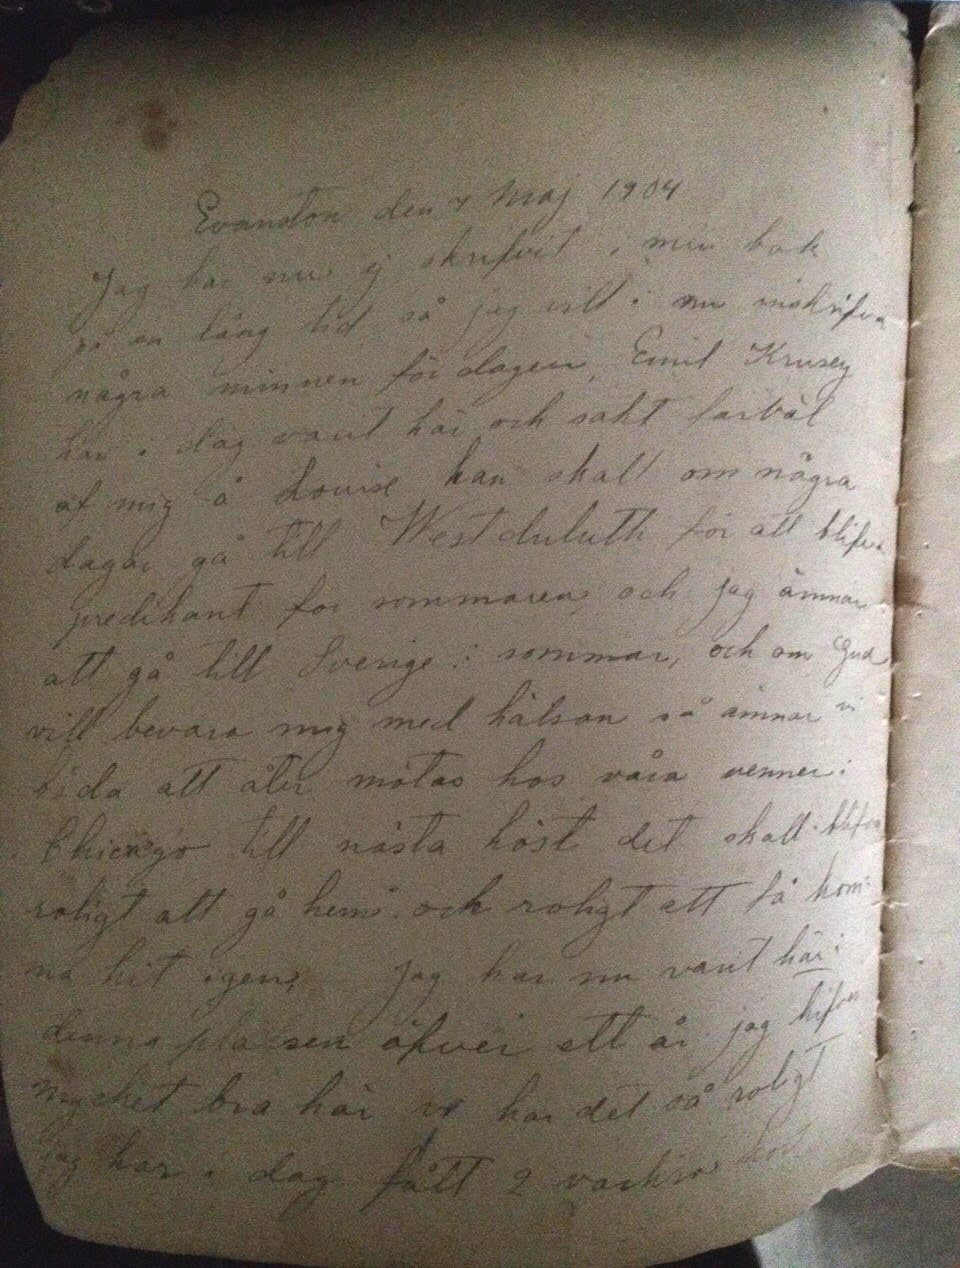 Evanston den 7 Maj 1904
Jag har nu ej skrifvit i min bok
på en lång tid så jag vill i nu inskrifva
några minnen för dagen, Emil Krusey
har i dag varit här och sakt farväl
af mig å Lovise han skall om några
dagar gå till West duluth för att blifva
predikant for sommaren och jag ämnar
att gå till Sverige i sommar, och om Gud
vill bevara mig med hälsan så ämnar vi
båda att åter mötas hos våra venner i
Chicago till nästa höst det skall blifva
roligt att gå hem och roligt att få kom-
ma hit igen, Jag har nu varit här i
denna platsen öfver ett år jag lifver
mycket bra här vi har det så roligt
jag har i dag fått 2 vackra